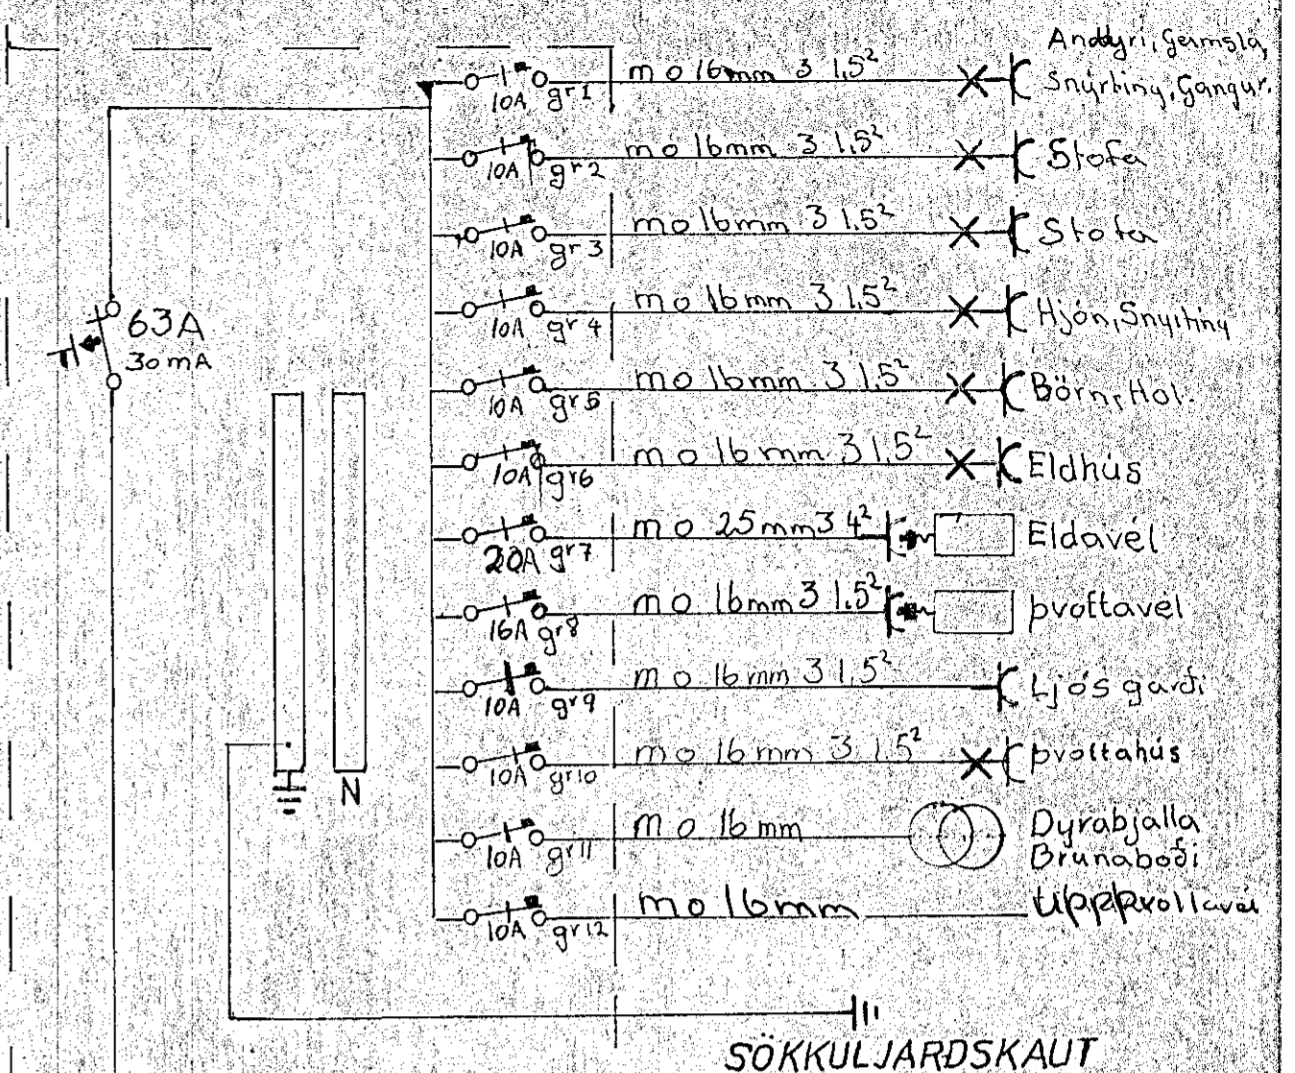 Anddyri, Geymsla,
10A gr1 m o 16mm 3 1,5² Snyrting, Gangur.
10A gr2 m o 16mm 3 1,5² Stofa
10A gr3 m o 16mm 3 1,5² Stofa
63A
30mA
10A gr4 m o 16mm 3 1,5² Hjón, Snyrting
10A gr5 m o 16mm 3 1,5² Börn, Hol.
10A gr6 m o 16mm 3 1,5² Eldhús
20A gr7 m o 25mm 3 4² Eldavél
16A gr8 m o 16mm 3 1,5² þvottavél
10A gr9 m o 16mm 3 1,5² Ljós garði
10A gr10 m o 16mm 3 1,5² þvottahús
N
10A gr11 m o 16mm Dyrabjalla
Brunaboði
10A gr12 m o 16mm Uppþvottavél
SÖKKULJARÐSKAUT